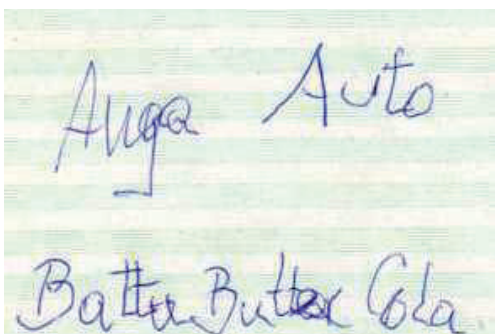 Anga Auto
Battu Butter Cola